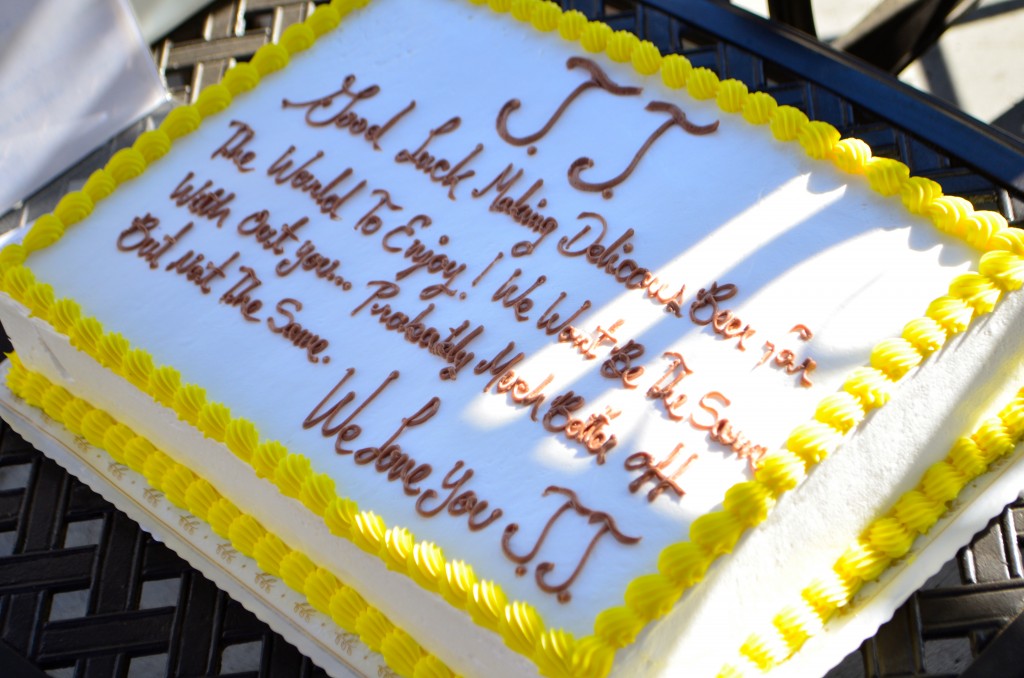 J. J.
Good Luck Making Delicious Beer for
The World To Enjoy! We Wont Be The Same
With out you... Probably Much Better off
But Not The Same.
We Love You J.J.